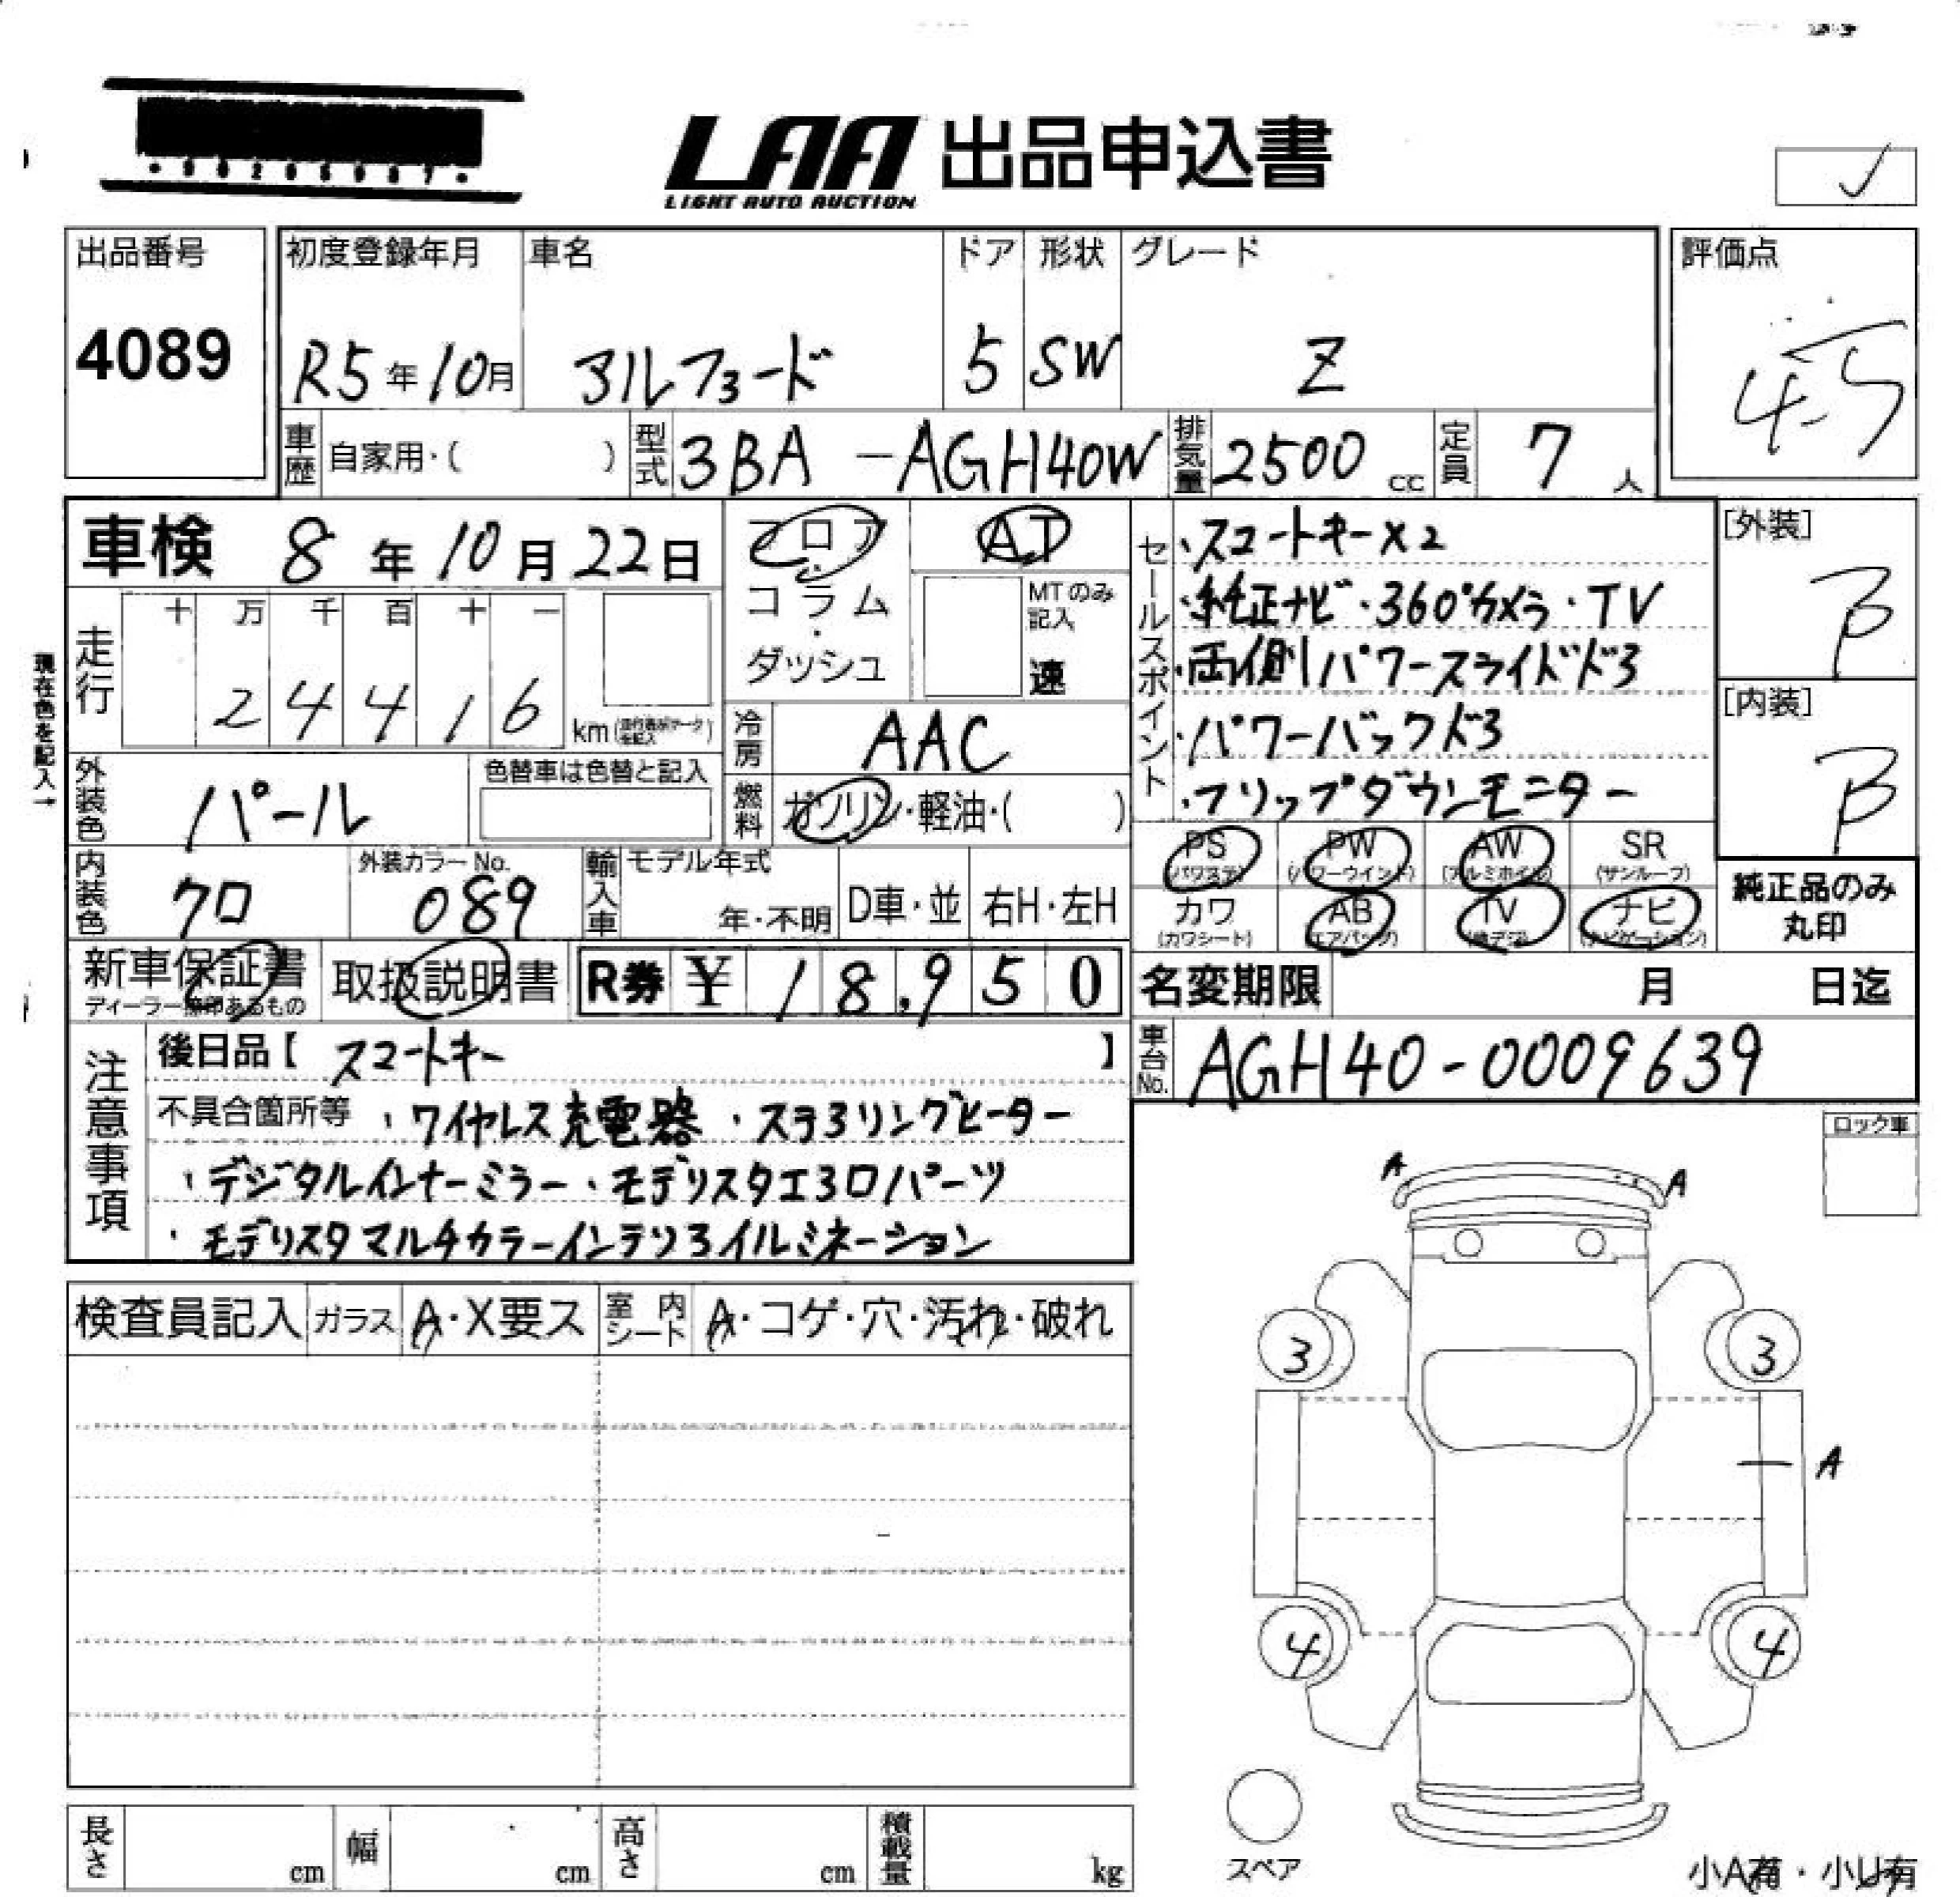 LAA 出品申込書
LIGHT AUTO AUCTION
出品番号
4089
初度登録年月 車名 ドア 形状 グレード
R5年10月 アルファード 5 SW Z
評価点
4.5
車歴 自家用・( ) 型式 3BA -AGH40W 排気量 2500 cc 定員 7 人
車検 8年10月22日
フロア
コラム
・
ダッシュ
AT
MTのみ
記入
速
セールスポイント
・スマートキー×2
・純正ナビ・360°カメラ・TV
・両側パワースライドドア
・パワーバックドア
・フリップダウンモニター
[外装]
B
[内装]
B
現在色を記入→
走行 十 万 千 百 十 一
2 4 4 1 6 km
冷房 AAC
燃料 ガソリン・軽油・( )
外装色 パール 色替車は色替と記入
内装色 クロ 外装カラーNo. 089 輸入車 モデル年式 年・不明 D車・並 右H・左H
PS (パワステ) PW (パワーウインド) AW (アルミホイル) SR (サンルーフ)
カワ (カワシート) AB (エアバック) TV (地デジ) ナビ (ナビゲーション)
純正品のみ
丸印
新車保証書 取扱説明書 R券 ¥ 18,950
ディーラー捺印あるもの
名変期限 月 日迄
車台No. AGH40-0009639
注意事項
後日品【 スマートキー 】
不具合箇所等 ・ワイヤレス充電器 ・ステアリングヒーター
・デジタルインナーミラー・モデリスタエアロパーツ
・モデリスタマルチカラーインテリアイルミネーション
ロック車
A A
検査員記入 ガラス A・X要ス 室内シート A・コゲ・穴・汚れ・破れ
3 3
A
4 4
スペア
長さ cm 幅 cm 高さ cm 積載量 kg
小A有・小U有